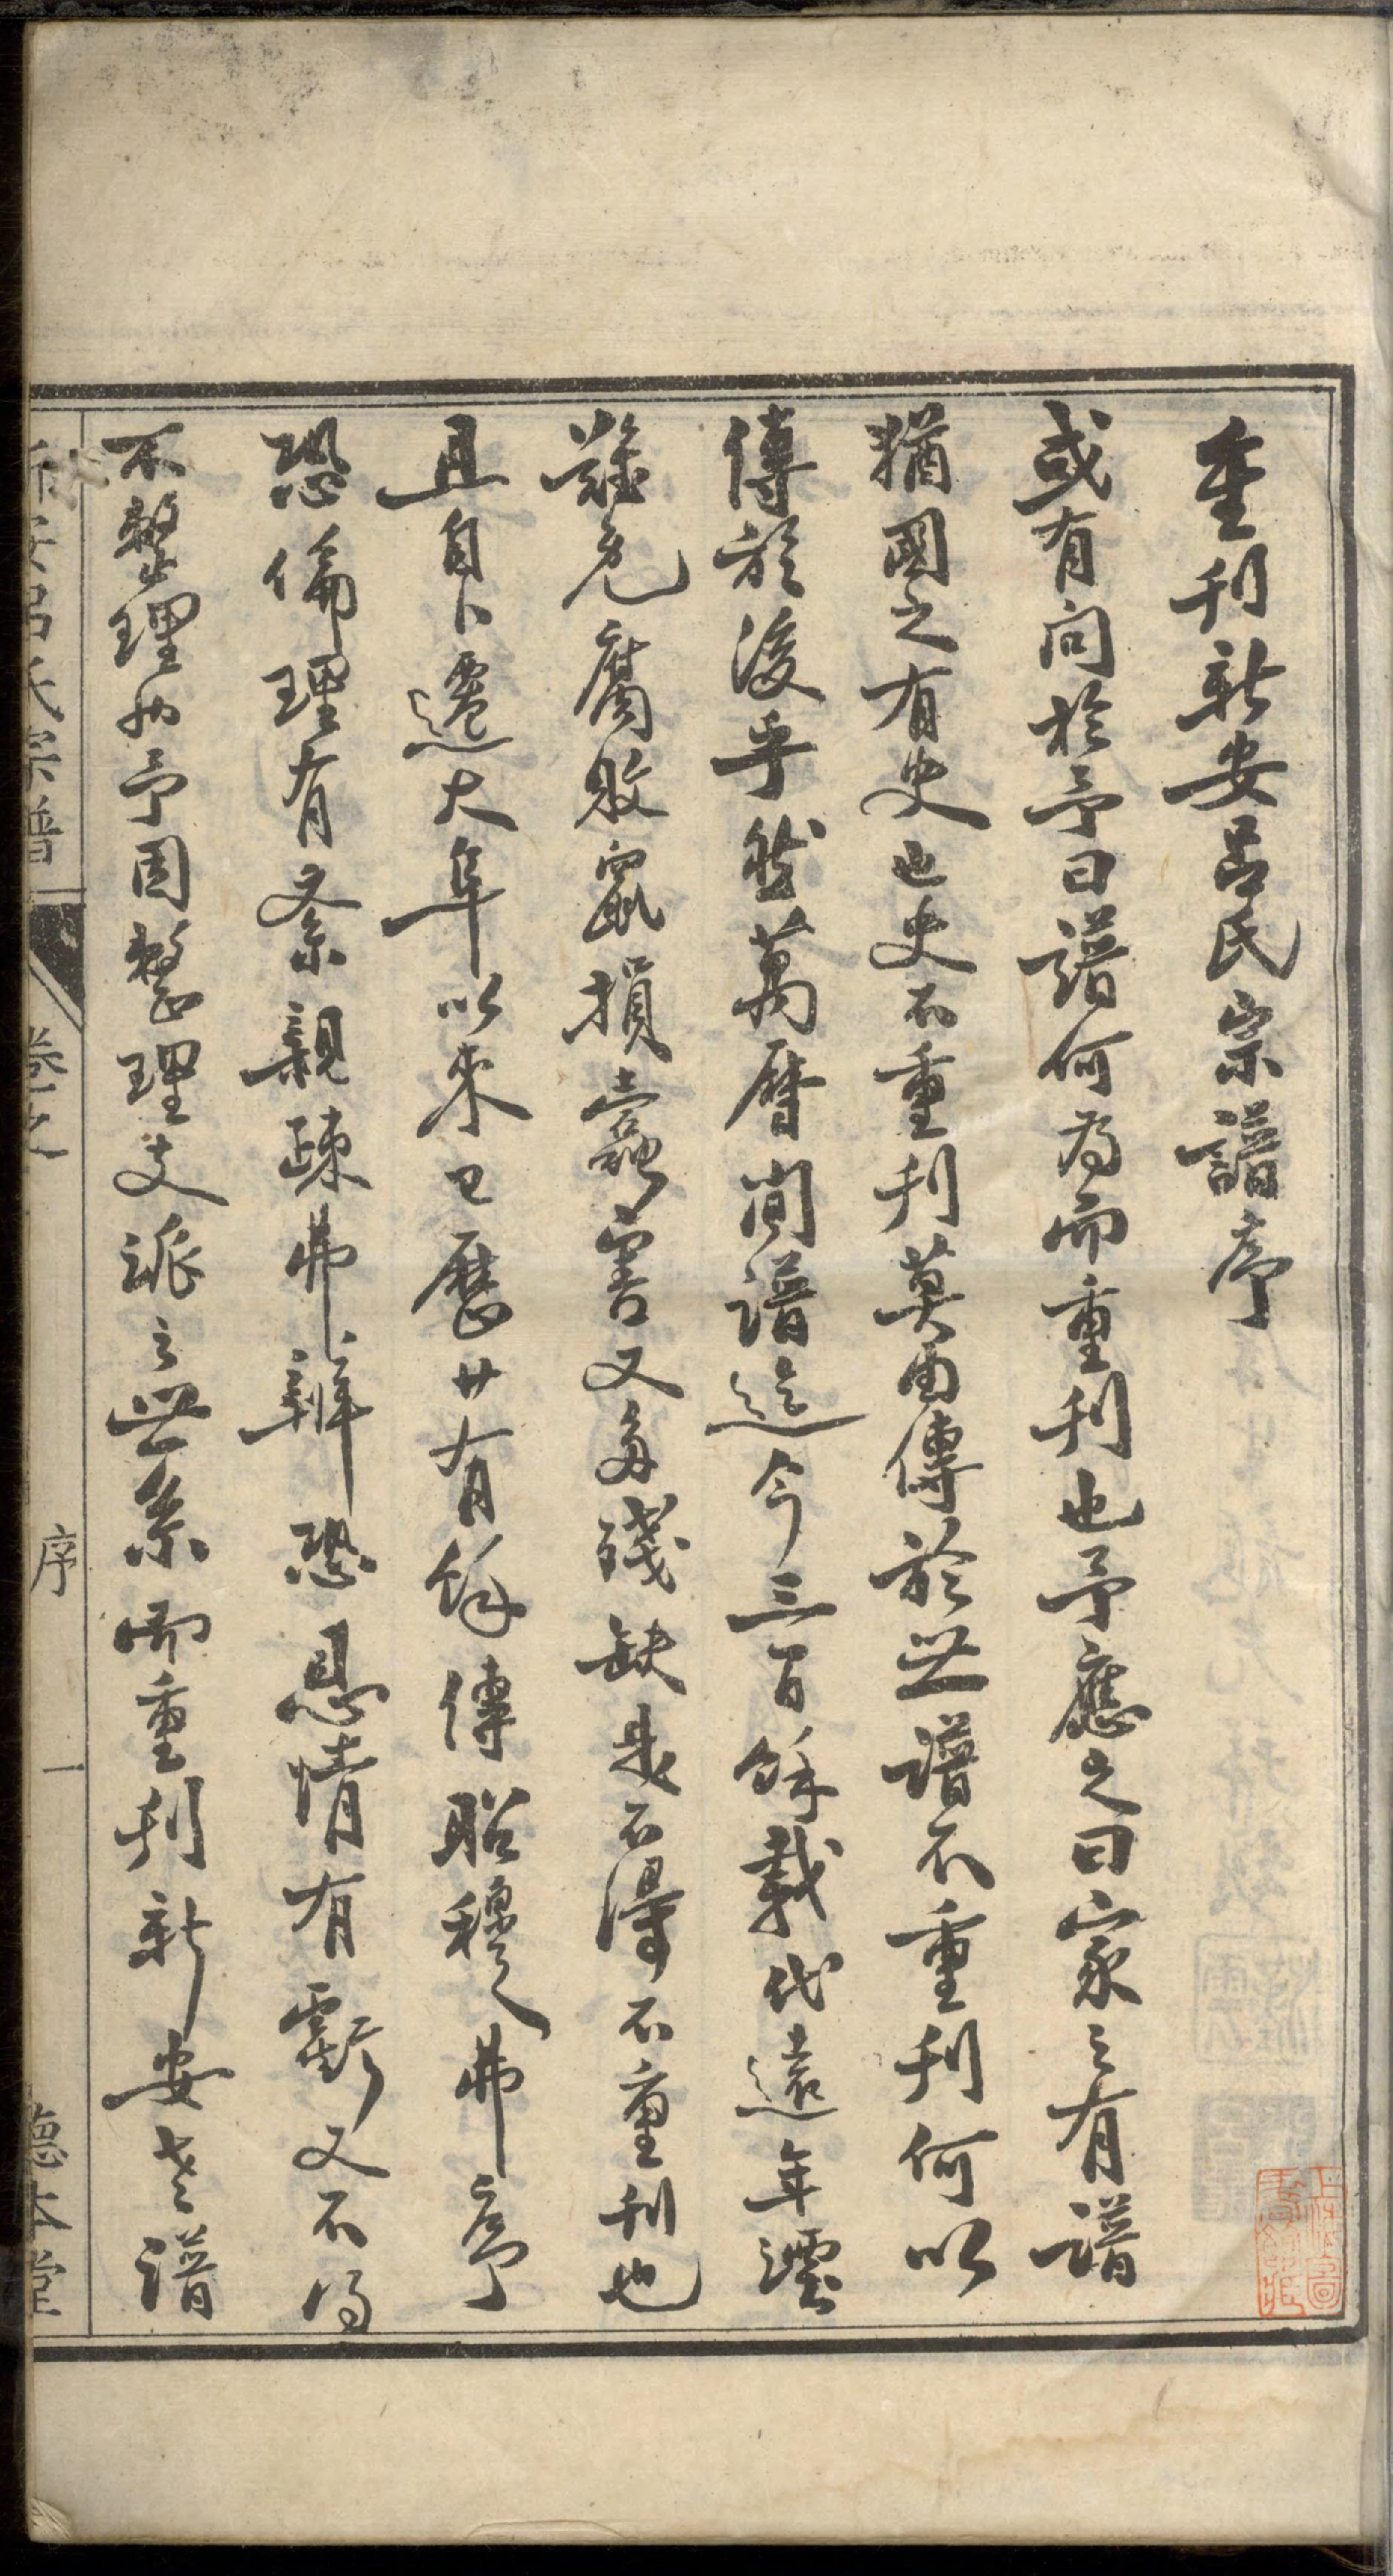 重刊新安呂氏宗譜序
或有问於予曰譜何为而重刊也予應之曰家之有譜
猶國之有史也史不重刊莫由傳於世譜不重刊何以
傳於後乎然萬曆间譜迄今三百餘載代遠年湮
難免腐敗鼠損蠹害又多殘缺是不得不重刊也
且自卜遷大阜以來已歷廿有餘傳昭穆弗序
恐倫理有紊親疎弗辨恐恩情有虧又不得
不整理也予因整理支派之世系而重刊新安老譜
新安呂氏宗譜 卷之 序 一 德本堂